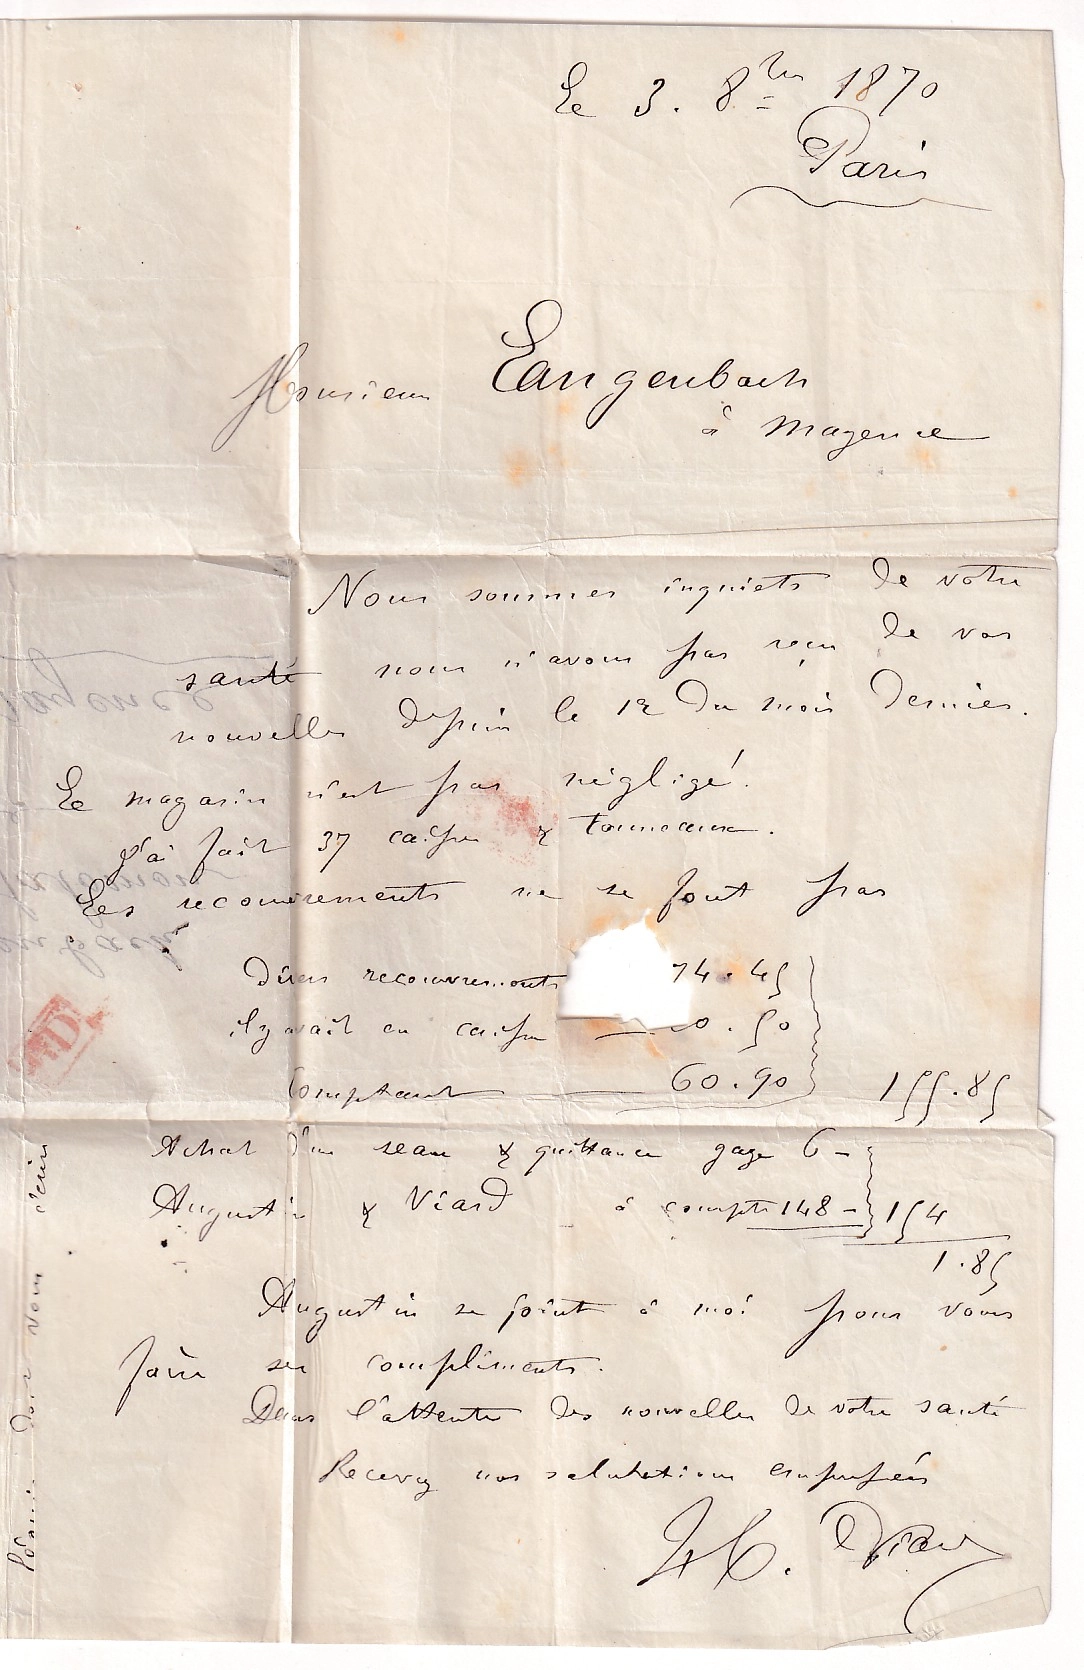 Le 3. 8bre 1870
Paris
Monsieur Langenbach
à Mayence
Nous sommes inquiets de votre
santé nous n'avons pas reçu de vos
nouvelles depuis le 12 du mois dernier.
Le magasin n'est pas négligé.
J'ai fait 37 caisses & tonneaux.
Les recouvrements ne se font pas
Divers recouvrements 74.45
il y avait en caisse 20.50
Comptant 60.90 155.85
Achat d'un seau & quittance gage 6 -
Augustin & Viard à compte 148 - 154
1.85
Augustin se joint à moi pour vous
faire ses compliments.
Dans l'attente des nouvelles de votre santé
Recevez nos salutations empressées
H. Viard
doit vous écrire
PD